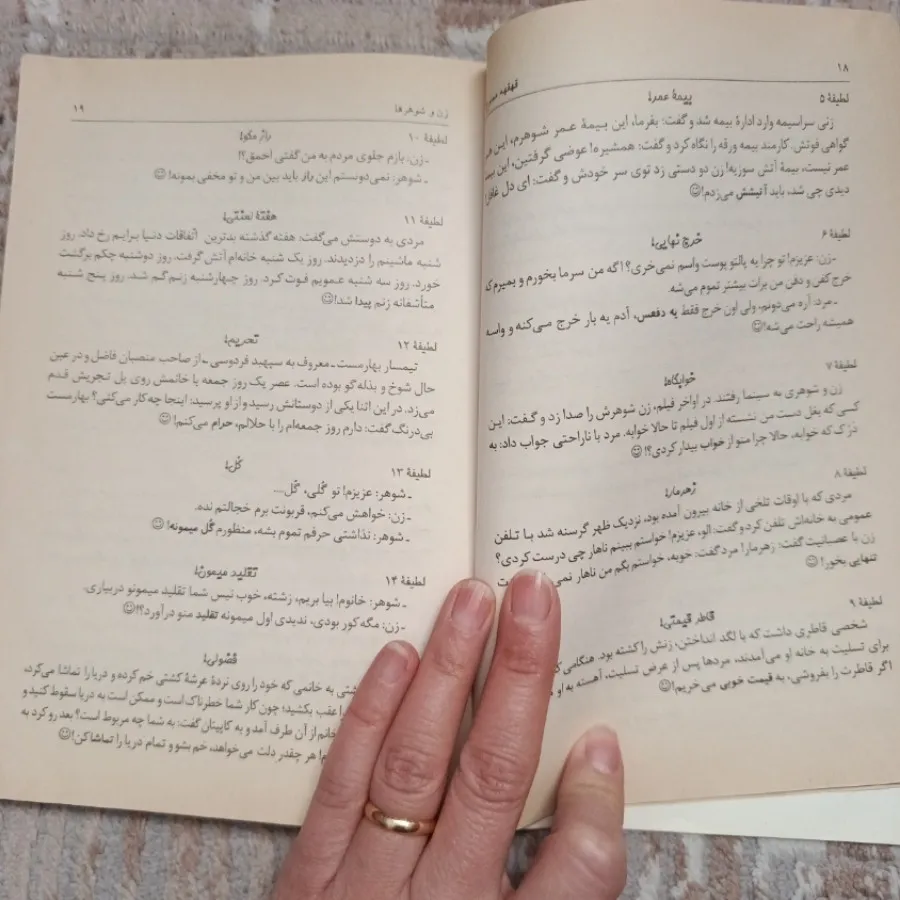 ۱۸
قهقهه
لطیفهٔ ۵
بیمهٔ عمر!
زنی سراسیمه وارد ادارهٔ بیمه شد و گفت: بفرما، این بیمهٔ عمر شوهرم، این هم
گواهی فوتش. کارمند بیمه ورقه را نگاه کرد و گفت: همشیره! عوضی گرفتین، این بیمهٔ
عمر نیست، بیمهٔ آتش سوزیه! زن دو دستی زد توی سر خودش و گفت: ای دل غافل
دیدی چی شد، باید آتیشش می‌زدم!☺
لطیفهٔ ۶
خرج نهایی!
ـ زن: عزیزم! تو چرا یه پالتو پوست واسم نمی‌خری؟! اگه من سرما بخورم و بمیرم که
خرج کفن و دفن من برات بیشتر تموم می‌شه.
ـ مرد: آره می‌دونم، ولی اون خرج فقط یه دفعس، آدم یه بار خرج می‌کنه و واسه
همیشه راحت می‌شه!☺
لطیفهٔ ۷
خوابگاه!
زن و شوهری به سینما رفتند. در اواخر فیلم، زن شوهرش را صدا زد و گفت: این
کسی که بغل دست من نشسته از اول فیلم تا حالا خوابه. مرد با ناراحتی جواب داد: به
دَرَک که خوابه، حالا چرا منو از خواب بیدار کردی؟!☺
لطیفهٔ ۸
زهرمار!
مردی که با اوقات تلخی از خانه بیرون آمده بود، نزدیک ظهر گرسنه شد با تلفن
عمومی به خانه‌اش تلفن کرد و گفت: الو، عزیزم! خواستم ببینم ناهار چی درست کردی؟
زن با عصبانیت گفت: زهرمار! مرد گفت: خوبه، خواستم بگم من ناهار نمی
تنهایی بخور!☺
لطیفهٔ ۹
قاطر قیمتی!
شخصی قاطری داشت که با لگد انداختن، زنش را کشته بود. هنگامی که
برای تسلیت به خانه او می‌آمدند، مردها پس از عرض تسلیت، آهسته به او
اگر قاطرت را بفروشی، به قیمت خوبی می‌خریم!☺
زن و شوهرها
۱۹
لطیفهٔ ۱۰
راز مگو!
ـ زن: بازم جلوی مردم به من گفتی احمق؟!
ـ شوهر: نمی‌دونستم این راز باید بین من و تو مخفی بمونه!☺
لطیفهٔ ۱۱
هفتهٔ لعنتی!
مردی به دوستش می‌گفت: هفته گذشته بدترین اتفاقات دنیا برایم رخ داد. روز
شنبه ماشینم را دزدیدند. روز یک شنبه خانه‌ام آتش گرفت. روز دوشنبه چکم برگشت
خورد. روز سه شنبه عمویم فوت کرد. روز چهارشنبه زنم گم شد. روز پنج شنبه
متأسفانه زنم پیدا شد!☺
لطیفهٔ ۱۲
تحریم!
تیمسار بهارمست ـ معروف به سپهبد فردوسی ـ از صاحب منصبان فاضل و در عین
حال شوخ و بذله‌گو بوده است. عصر یک روز جمعه با خانمش روی پل تجریش قدم
می‌زد. در این اثنا یکی از دوستانش رسید و از او پرسید: اینجا چه‌کار می‌کنی؟ بهارمست
بی‌درنگ گفت: دارم روز جمعه‌ام را با حلالم، حرام می‌کنم!☺
لطیفهٔ ۱۳
گُل!
ـ شوهر: عزیزم! تو گُلی، گُل....
ـ زن: خواهش می‌کنم، قربونت برم خجالتم نده.
ـ شوهر: نذاشتی حرفم تموم بشه، منظورم گُل میمونه!☺
لطیفهٔ ۱۴
تقلید میمون!
ـ شوهر: خانوم! بیا بریم، زشته، خوب نیس شما تقلید میمونو دربیاری.
ـ زن: مگه کور بودی، ندیدی اول میمونه تقلید منو درآورد؟!☺
فضولی!
به خانمی که خود را روی نردهٔ عرشهٔ کشتی خم کرده و دریا را تماشا می‌کرد،
را عقب بکشید؛ چون کار شما خطرناک است و ممکن است به دریا سقوط کنید و
خانم از آن طرف آمد و به کاپیتان گفت: به شما چه مربوط است؟ بعد رو کرد به
هر چقدر دلت می‌خواهد، خم بشو و تمام دریا را تماشا کن!☺